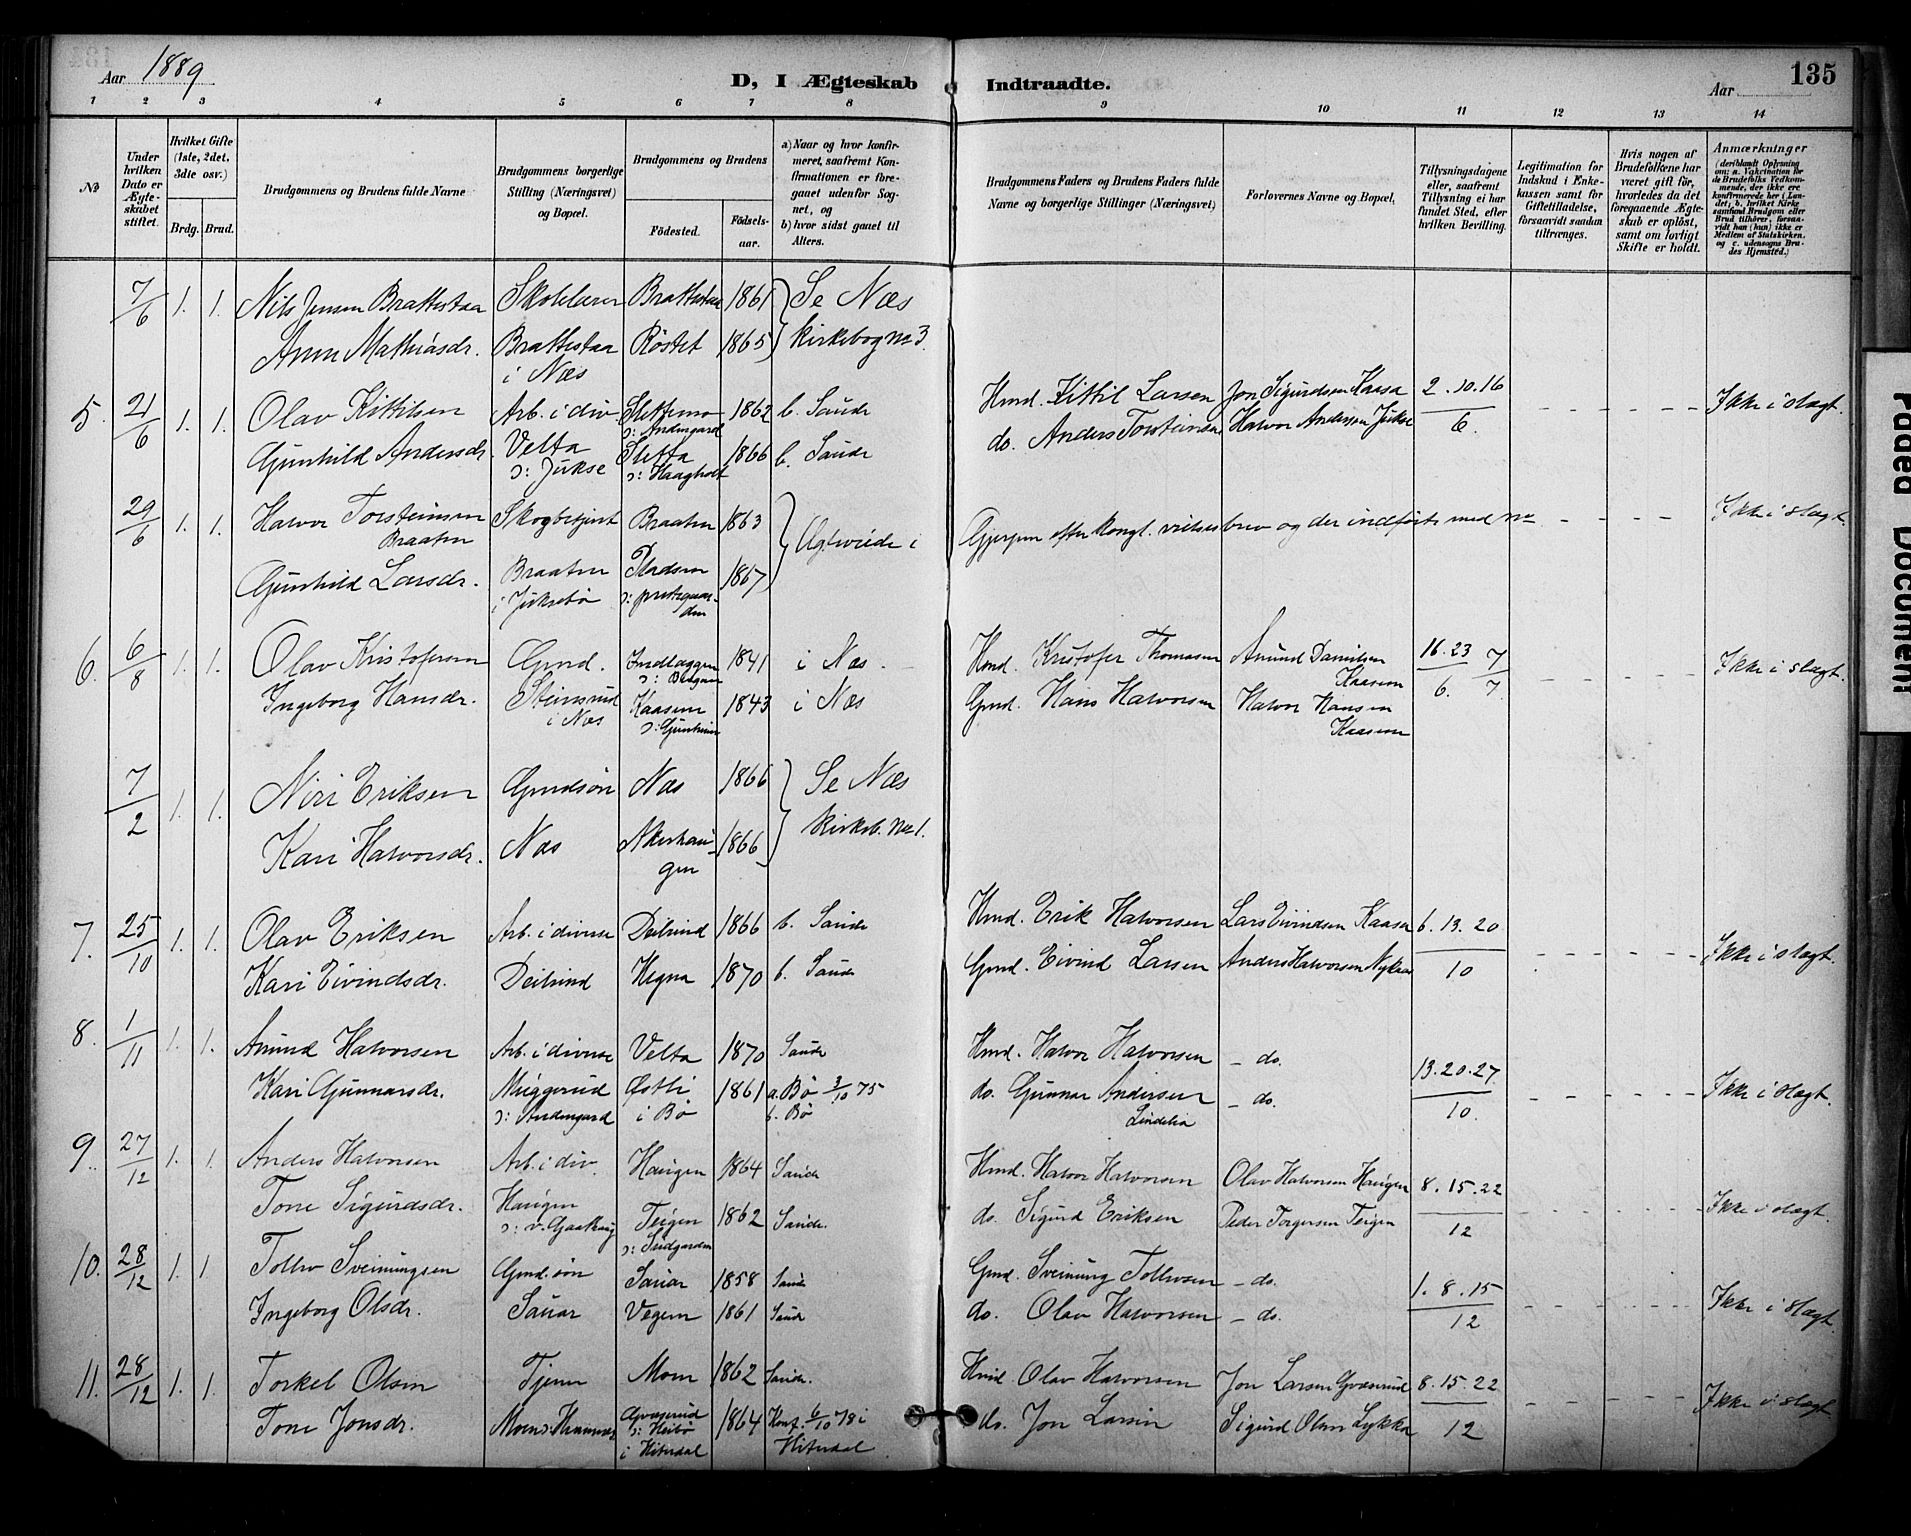 Aar 1889
D, I Ægteskab Indtraadte.
Aar
135
1 2 3 4 5 6 7 8 9 10 11 12 13 14
№
Under hvilken Dato er Ægteskabet stiftet.
Hvilket Gifte (1ste, 2det, 3die osv.)
Brdg. Brud.
Brudgommens og Brudens fulde Navne
Brudgommens borgerlige Stilling (Næringsvei) og Bopæl.
Brudgommens og Brudens
Fødested. Fødselsaar.
a) Naar og hvor konfirmeret, saafremt Konfirmationen er foregaaet udenfor Sognet, og
b) hvor sidst gaaet til Alters.
Brudgommens Faders og Brudens Faders fulde Navne og borgerlige Stillinger (Næringsvei)
Forlovernes Navne og Bopæl,
Tillysningsdagene eller, saafremt Tillysning ei har fundet Sted, efter hvilken Bevilling.
Legitimation for Indskud i Enkekassen samt for Giftetilladelse, forsaavidt saadan tiltrænges.
Hvis nogen af Brudefolkene har været gift før, hvorledes da det foregaaende Ægteskab er opløst, samt om lovligt Skifte er holdt.
Anmærkninger (deriblandt Oplysning om: a. Vakcination for de Brudefolks Vedkommende, der ikke ere konfirmerede her i Landet; b. hvilket Kirkesamfund Brudgom eller Brud tilhører, forsaavidt han (hun) ikke er Medlem af Statskirken. og c. udensogns Brudes Hjemsted.)
7/6 1. 1. Nils Jensen Brattestaa Skolelærer Brattestaa 1861 Se Næs
Anne Mathiasdr. Brattestaa Røstet 1865 kirkebog no 3.
i Næs
5. 21/6 1. 1. Olav Kittilsen Arb. i div. Slettemo 1862 b. Saude Hmd. Kittil Larsen Jon Sigurdsen Kaasa 2. 10. 16 / 6. Ikke i slægt.
ɔ: Andersgard
Gunhild Andersdr. Velta Sletta 1866 b. Saude do. Anders Torsteinsen Halvor Andersen Jukse
ɔ: Jukse ɔ: Haagholt
29/6 1. 1. Halvor Torsteinsen Skogbetjent Braaten 1863 Ugtevide i Gjerpen efter kongl. vielsesbrev og der indført med no Ikke i slægt.
Braaten
Gunhild Larsdr. Braaten Pladsen 1867
i Juksebø ɔ: prestegaarden
6. 6/8 1. 1. Olav Kristofersen Gmd. Indlæggen 1841 i Næs. Hmd. Kristofer Thomasen Amund Danielsen 16. 23 / 6. 7/7 Ikke i slægt.
Kaasen
Ingeborg Hansdr. Steinsrud Kaasen 1843 i Næs Gmd. Hans Halvorsen Halvor Hansen
i Næs Kaasen
7/2 1. 1. Niri Eriksen Gmdsøn Næs 1866 Se Næs
Kari Halvorsdr. Næs Akerhaugen 1866 kirkeb. no 1.
7. 25/10 1. 1. Olav Eriksen Arb. i diverse Deilrind 1866 b. Saude Hmd. Erik Halvorsen Lars Eivindsen Kaasa 6. 13. 20 / 10 Ikke i slægt.
Kari Eivindsdr. Deilrind Hegna 1870 b. Saude Gmd. Eivind Larsen Anders Halvorsen Nykaas
8. 1/11 1. 1. Amund Halvorsen Arb. i diverse Velta 1870 Saude Hmd. Halvor Halvorsen – do. 13. 20. 27 / 10. Ikke i slægt.
Kari Gunnarsdr. Muggerud Østli 1861 a. Bø 3/10 75 do. Gunnar Andersen – do.
ɔ: Andersgard i Bø b. Bø Lindelia
9. 27/12 1. 1. Anders Halvorsen Arb. i div. Haugen 1864 Saude Hmd. Halvor Halvorsen Olav Halvorsen Haugen 8. 15. 22 / 12 Ikke i slægt.
Tone Sigurdsdr. Haugen Teigen 1862 Saude. do. Sigurd Eriksen Peder Torgersen Teigen
ɔ: Sudgarden
10. 28/12 1. 1. Tollev Sveinungsen Gmd. søn Sauar 1858 Saude Gmd. Sveinung Tollevsen – do. 1. 8. 15 / 12 Ikke i slægt.
Ingeborg Olsdr. Sauar Vegem 1861 Saude do. Olav Halvorsen – do.
11. 28/12 1. 1. Torkel Olsen Tjener Moen 1862 Saude. Hmd. Olav Halvorsen Jon Larsen Gvaserud 8. 15. 22 / 12 Ikke i slægt
Tone Jonsdr. Gvaserud 1864 Konf. 6/10 78 i do. Jon Larsen Sigurd Olsen Lykkja
ɔ: Heibø
i Hiterdal Hiterdal
Faded Document